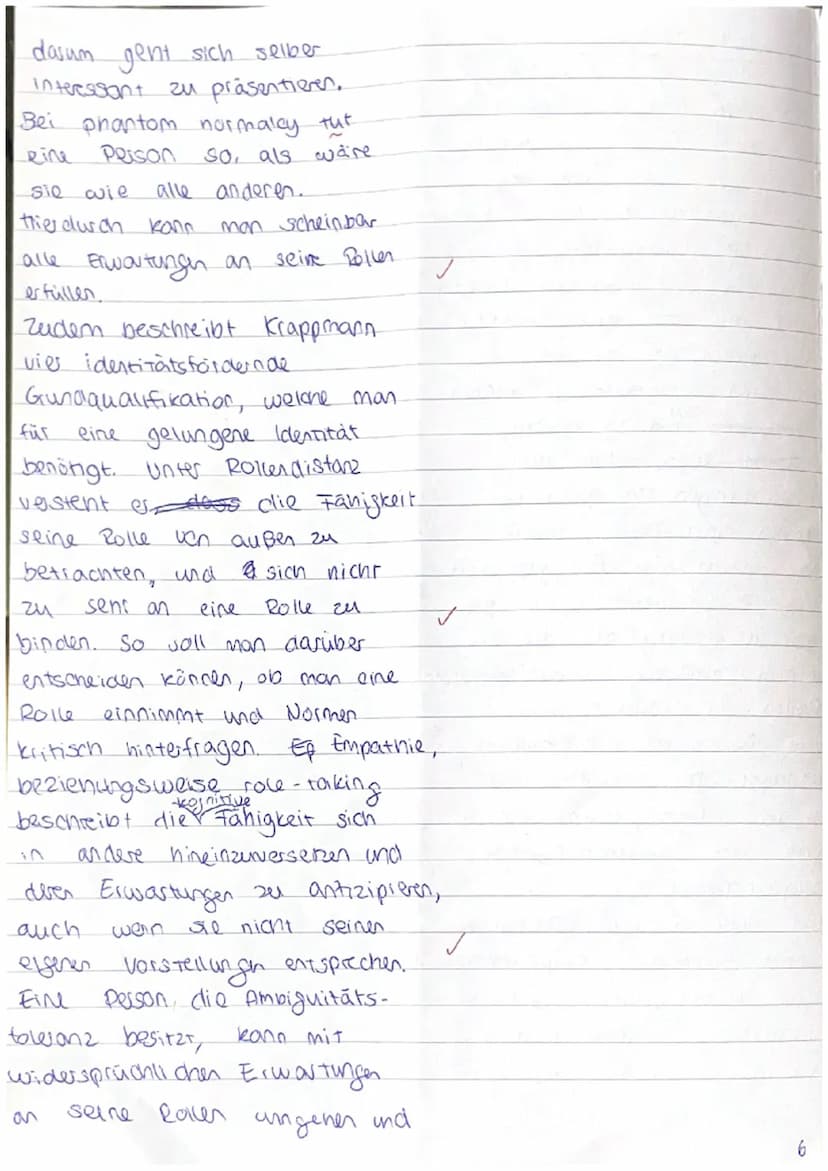 darum geht sich selber
interessant zu präsentieren.
Bei phantom normalcy tut
eine Person so, als wäre
sie wie alle anderen.
Hierdurch kann man scheinbar
alle Erwartungen an seine Rollen
erfüllen.
Zudem beschreibt Krappmann
vier identitätsfördernde
Grundqualifikation, welche man
für eine gelungene Identität
benötigt. Unter Rollendistanz
versteht er dass die Fähigkeit
seine Rolle von außen zu
betrachten, und sich nicht
zu sehr an eine Rolle zu
binden. So soll man darüber
entscheiden können, ob man eine
Rolle einnimmt und Normen
kritisch hinterfragen. Ep Empathie,
beziehungsweise role-taking
kognitive
beschreibt die Fähigkeit sich
in andere hineinzuversetzen und
deren Erwartungen zu antizipieren,
auch wenn sie nicht seinen
eigenen Vorstellungen entsprechen.
Eine Person, die Ambiguitäts-
toleranz besitzt, kann mit
widersprüchlichen Erwartungen
an seine Rollen umgehen und
6